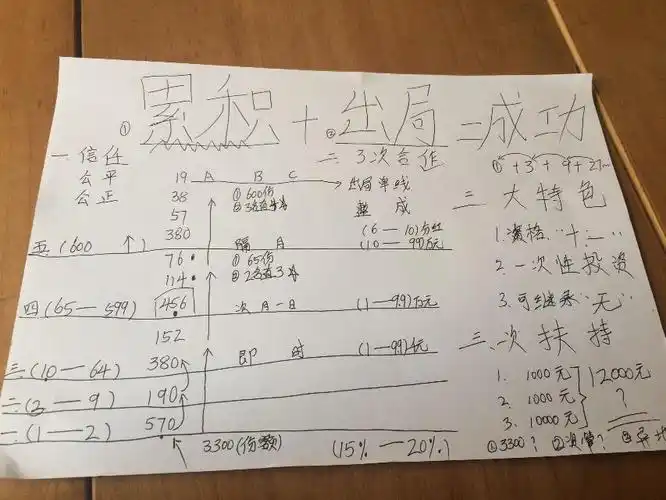 ① 累积 + ② 出局 = 成功
一 信任
公平
公正
二 3次合作
19 A B C → 出局单线
38 ① 600份
57
380
五(600 ↑) 隔月 (6—10)分红
(10—99)万元
76 ① 65份
114
四(65—599) 456 次月一日 (1—9.9)万元
152
三(10—64) 380 即时 (1—99)元
二(3—9) 190
一(1—2) 570
3300(份数) (15%—20%)
①+3+9+27
三 大特色
1. 资格"十一"
2. 一次性投资
3. 可继承"无"
三、次扶持
1. 1000元
2. 1000元
3. 10000元
12000元
?
①3300?